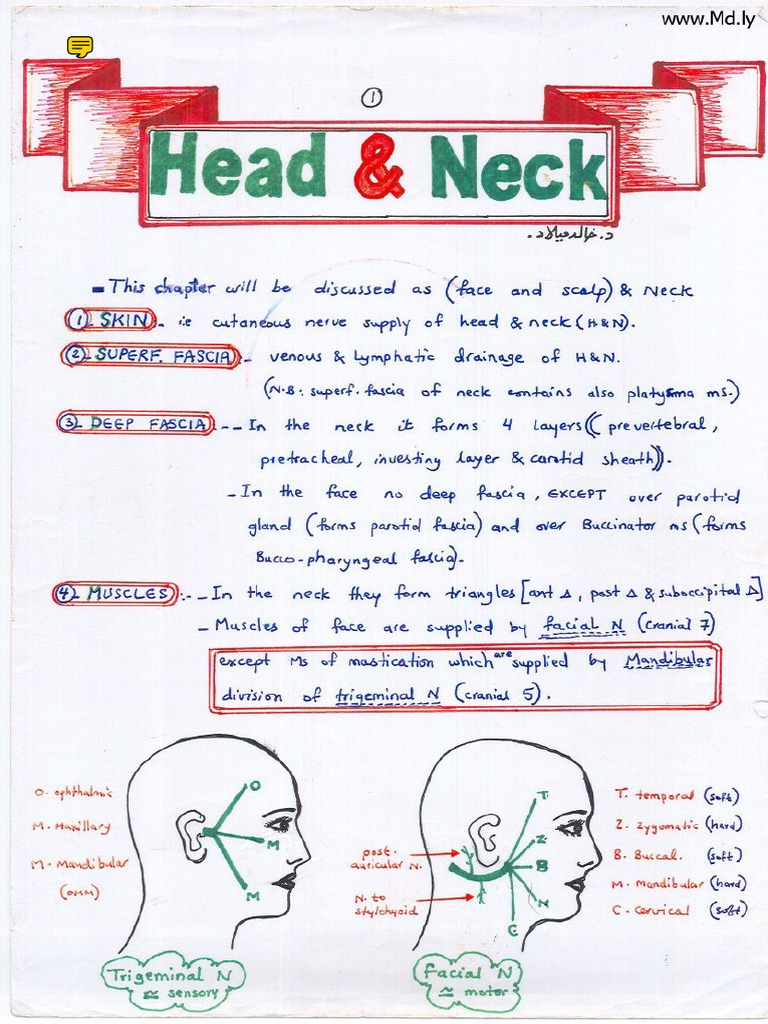 www.Md.ly
1
Head & Neck
د. خالد ميلاد.
- This chapter will be discussed as (face and scalp) & Neck
① SKIN - ie cutaneous nerve supply of head & neck (H&N).
②- SUPERF. FASCIA:- venous & lymphatic drainage of H&N.
(N.B: superf. fascia of neck contains also platysma ms.)
③- DEEP FASCIA -- In the neck it forms 4 layers ((prevertebral,
pretracheal, investing layer & carotid sheath)).
- In the face no deep fascia, EXCEPT over parotid
gland (forms parotid fascia) and over Buccinator ms (forms
Bucco-pharyngeal fascia).
④- MUSCLES:- - In the neck they form triangles [ant Δ, post Δ & suboccipital Δ]
- Muscles of face are supplied by facial N (cranial 7)
except Ms of mastication which are supplied by Mandibular
division of trigeminal N (cranial 5).
O- ophthalmic
M- Maxillary
M- Mandibular
(OMM)
O
M
M
Trigeminal N
≈ sensory
post.
auricular N.
N. to
stylohyoid
T
Z
B
M
C
Facial N
≃ motor
T. temporal (soft)
Z. zygomatic (hard)
B. Buccal. (soft)
M- mandibular (hard)
C- Cervical (soft)